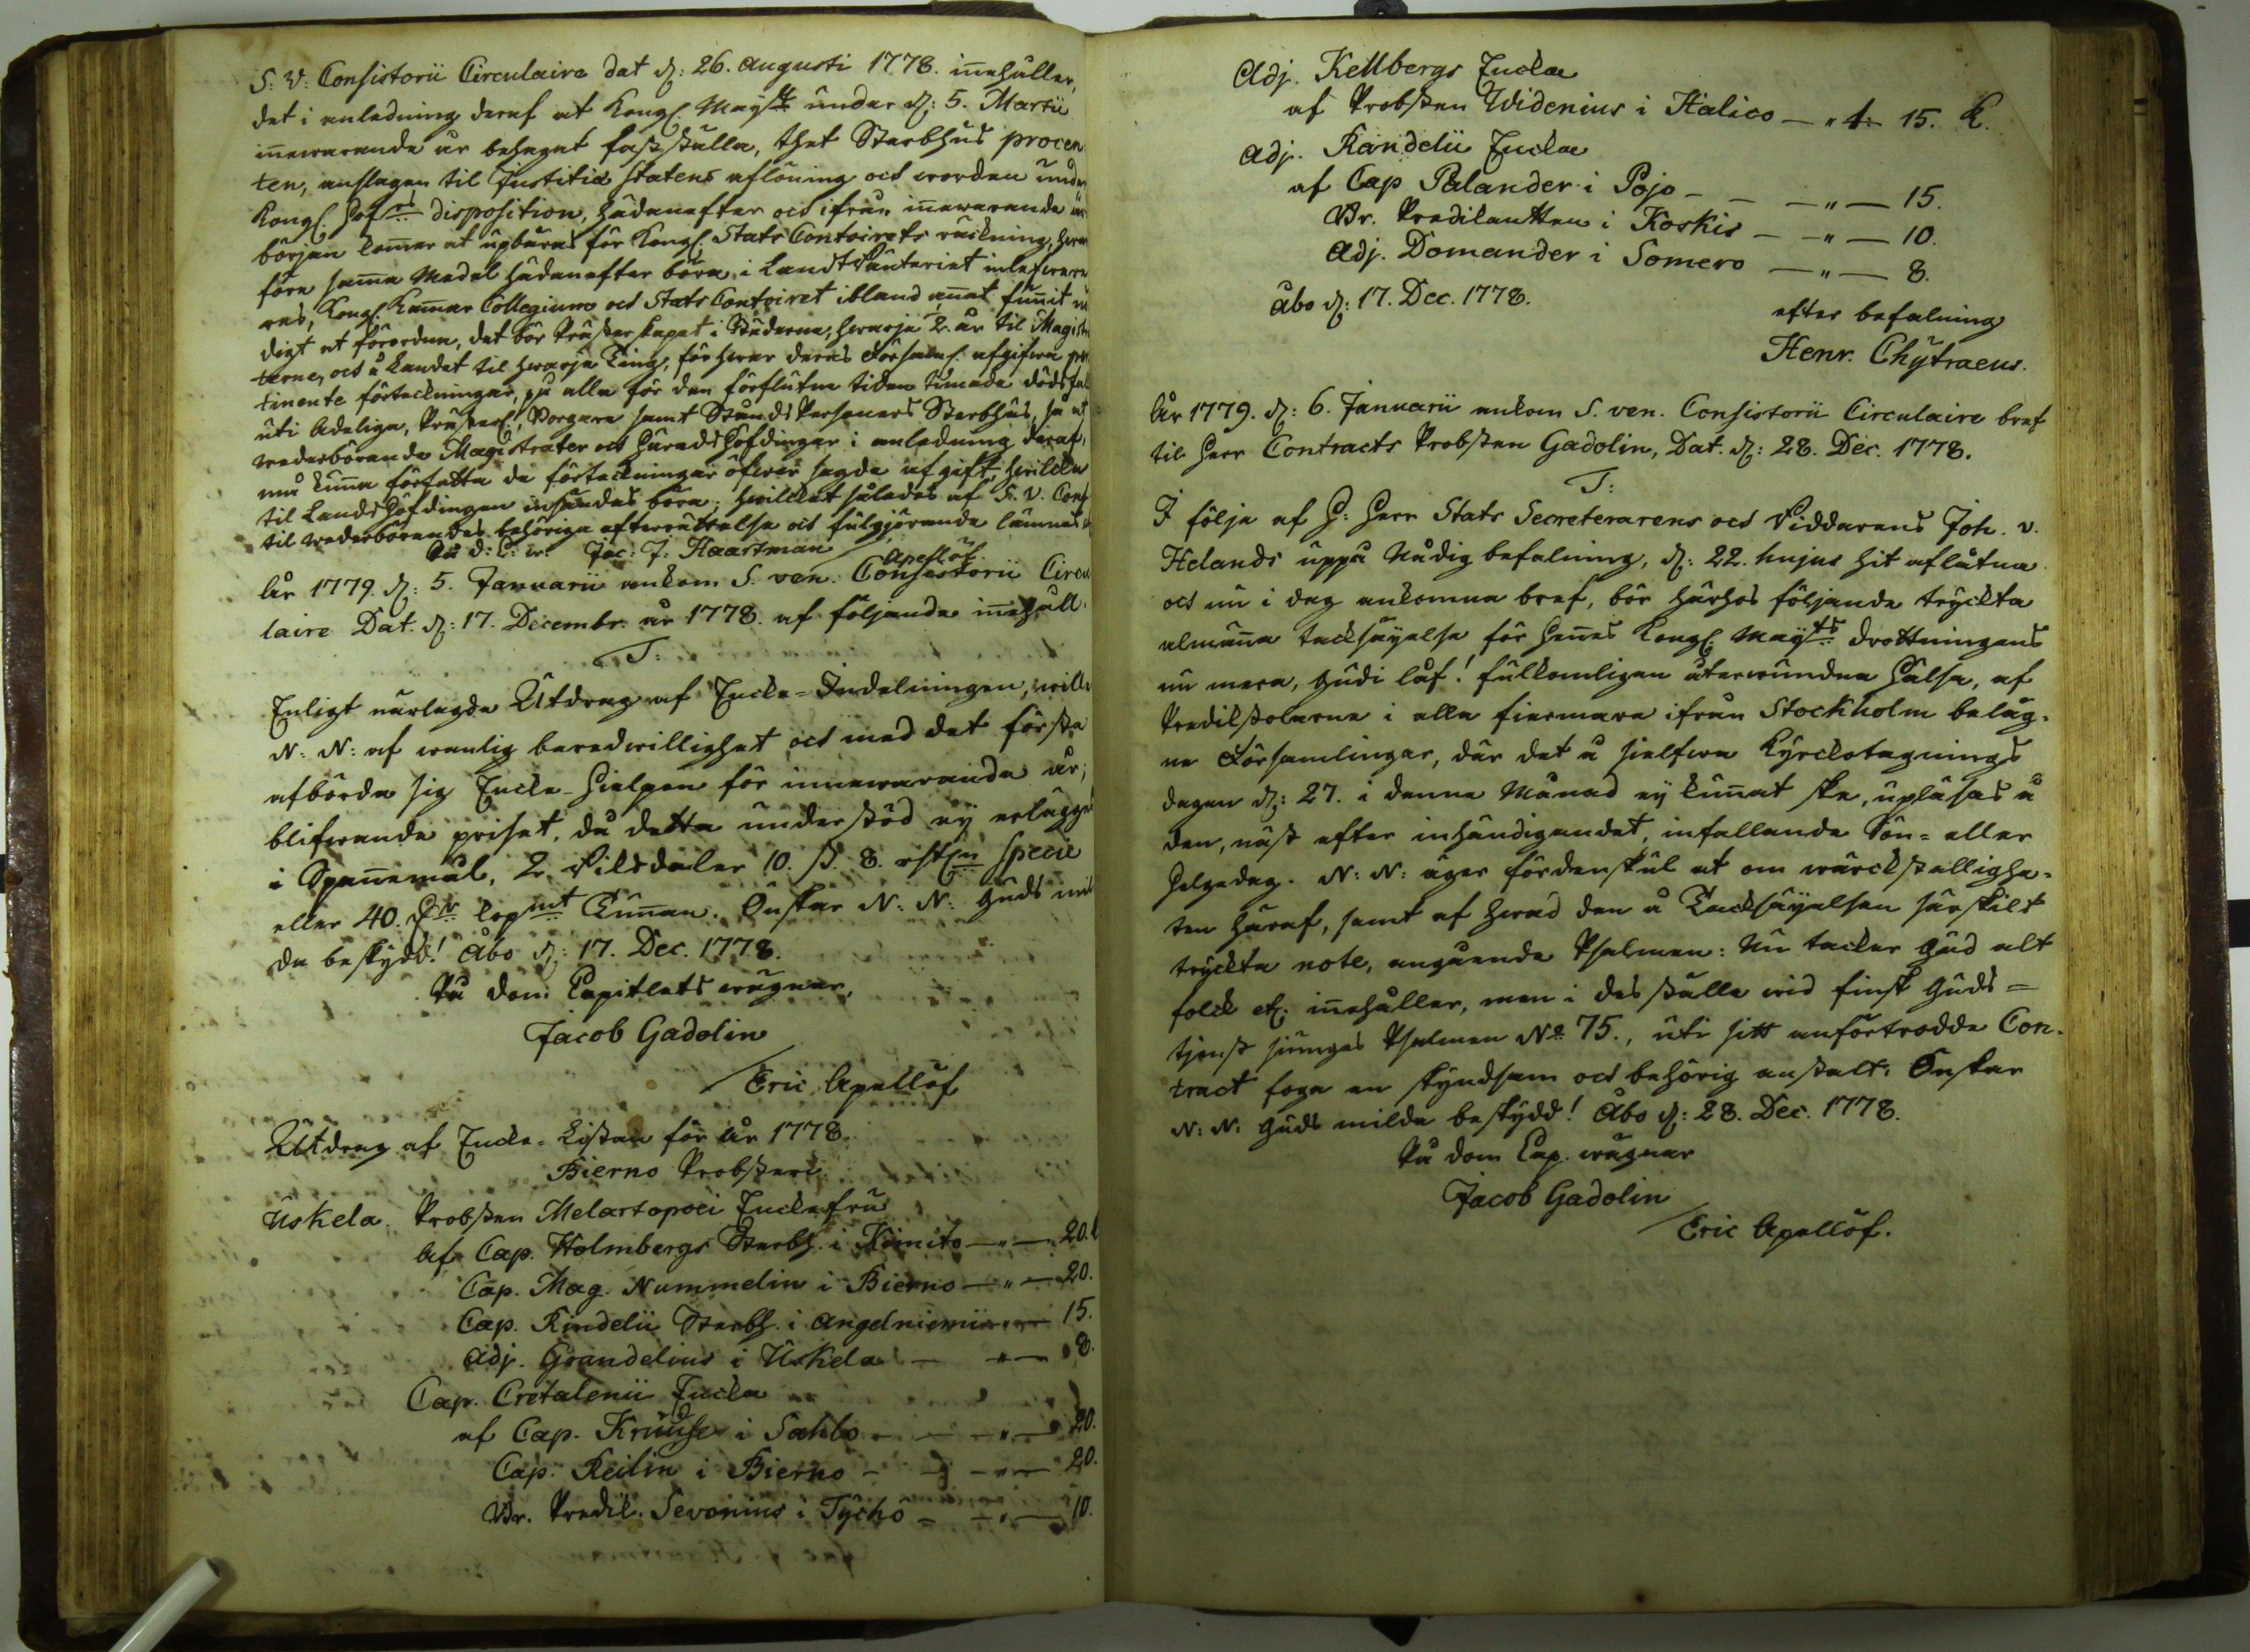 S: V: Consistorii Circulaire dat d: 26. Augusti 1778. innehåller,
det i anledning deraf at Kongl. Maij:t under d: 5. Martii
innewarande år behagat fastställa, thet Sterbhus procen
ten, anslagen til Justitiæ Statens aflöning och worden under
Kongl. Hof disposition, hädanefter och ifrån innewarande års
början kommer at upbäras för Kongl. Stats Contoirets räckning, hwar
före samma Medel hädanefter böra i Landt Ränteriet inlefwere
ras, Kongl. Kammar Collegium och Stats Contoiret ibland annat funnit nö
digt at förordna, det bör Prästerskapet i Städerna, hwarje 1/2 år til Magistra
terne, och å Landet til hwarje Ting, för hwar deras Församl. afgifwa per
tinente förteckningar, på alla för den förflutne tiden timade dödsfal
uti Adeliga, Presterl., Borgare samt Stånds Personers Sterbhus, så at
wederbörande Magistrater och Häradshöfdingar i anledning deraf,
må kunna författa de förteckningar öfwer sagde afgift, hwilcka
til Landshöfdingen insändas böra; hwilcket således af S. V. Cons
til wederbörandes behöriga efterrättelse och fulgjörande lämnas
På d: C: w: Jac: J: Haartman
Apellöf.
År 1779. d: 5. Januarii ankom S. ven. Consistorii Circu
laire Dat. d: 17. Decembr. år 1778. af följande innehåll.
T:
Enligt närlagde Utdrag af Encke-Indelningen, wille
N: N: af wanlig beredwillighet och med det första
afbörda sig Encke-Hielpen för innewarande år;
blifwande priset, då detta understöd ej erlägges
i Spannemål, 2. Riksdaler 10. s. 8. rst specie
eller 40. lop Tunnan. Önskar N: N: Guds mil
da beskydd! Åbo d: 17. Dec. 1778.
På Dom Capitlets wägnar,
Jacob Gadolin
/ Eric Apellöf
Utdrag af Encke-Listan för År 1778.
Bierno Probsteri
Uskela. Probsten Melartopoei Enckefru
Af Cap. Holmbergs Sterbh. i Kimito — " — 20.
Cap. Mag. Nummelin i Bierno — " — 20.
Cap. Kindelii Sterbh. i Angelniemi — " — 15.
Adj. Grandelius i Uskela — " — 8.
Cap. Cretalenii Encka
af Cap. Kruuse i Sahlo — — " — 20.
Cap. Keilin i Bierno — — " — 20.
Br. Predik. Sevonius i Tychö — " — 10.
Adj. Kellbergs Enckæ
af Probsten Widenius i Halico — " 15. K.
Adj. Randelii Enckæ
af Cap Palander i Pojo — — " — 15.
Br. Predikanten i Koskis — " — 10.
Adj. Domander i Somero — " — 8.
Åbo d: 17. Dec. 1778.
efter befalning
Henr. Chytraeus.
År 1779. d: 6. Januarii ankom S. ven. Consistorii Circulaire bref
til Herr Contracts Probsten Gadolin, Dat. d: 28. Dec. 1778.
T:
I följe af H: Herr Stats Secreterarens och Riddarens Joh. v.
Helands uppå Nådig befalning, d: 22. hujus hit aflåtna
och nu i dag ankomna bref, bör härhos följande tryckta
almänna tacksäyelse för Hennes Kongl. Maij:ts Drottningens
nu mera, Gudi låf! fullkomligen återwundna Hälsa, af
Predikstolarne i alla fiermare ifrån Stockholm beläg-
ne Församlingar, där det å sielfwa Kyrckotagnings
dagen d: 27. i denne Månad ej kunnat ske, upläsas å
den, näst efter inhändigandet, infallande Sön- eller
Helgedag. N: N: äger fördenskul at om wärckställighe-
ten häraf, samt af hwad den å Tacksäyelsen särskilt
tryckta note, angående Psalmen: Nu tacker Gud alt
folck etc. innehåller, men i des ställe wid finsk Guds-
tjenst siunges Psalmen No 75., uti sitt anförtrodde Con-
tract foga en skyndsam och behörig anstalt. Önskar
N: N: Guds milda beskydd! Åbo d: 28. Dec. 1778.
På Dom Cap. wägnar
Jacob Gadolin
/ Eric Apellöf.